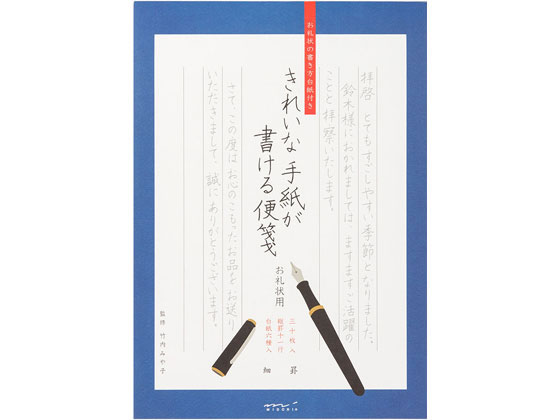 お礼状の書き方台紙付き
拝啓　とてもすごしやすい季節となりました。
鈴木様におかれましては、ますますご活躍の
ことと拝察いたします。
きれいな手紙が
書ける便箋
お礼状用
さて、この度はお心のこもったお品をお送り
いただきまして、誠にありがとうございます。
三十枚入
縦罫十一行
台紙六種入
細　罫
監修　竹内みや子
MIDORI